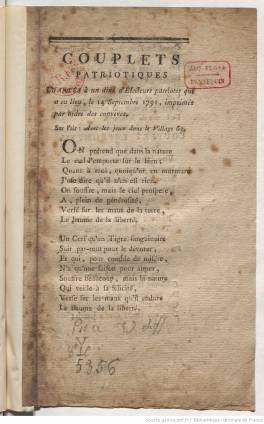 COUPLETS
PATRIOTIQUES
CHANTÉS à un diné d'Electeurs patriotes qui
a eu lieu, le 14 Septembre 1791, imprimés
par ordre des convives.
Sur l'air: dont les jeux dans le Village &c.
ON prétend que dans la nature
Le mal l'emporte sur le bien;
Quant à moi, quoiqu'on en murmure
J'ose dire qu'il n'en est rien.
On souffre, mais le ciel propice,
A, plein de générosité,
Versé sur les maux de la terre,
Le Baume de la liberté.
Un Cerf qu'un Tigre sanguinaire
Suit par-tout pour le dévorer,
Et qui, pour comble de misère,
N'a qu'une saison pour aimer,
Souffre beaucoup, mais la nature
Qui veille à sa félicité,
Verse sur les maux qu'il endure
Le Baume de la liberté.
Ye
5356
Source gallica.bnf.fr / Bibliothèque nationale de France